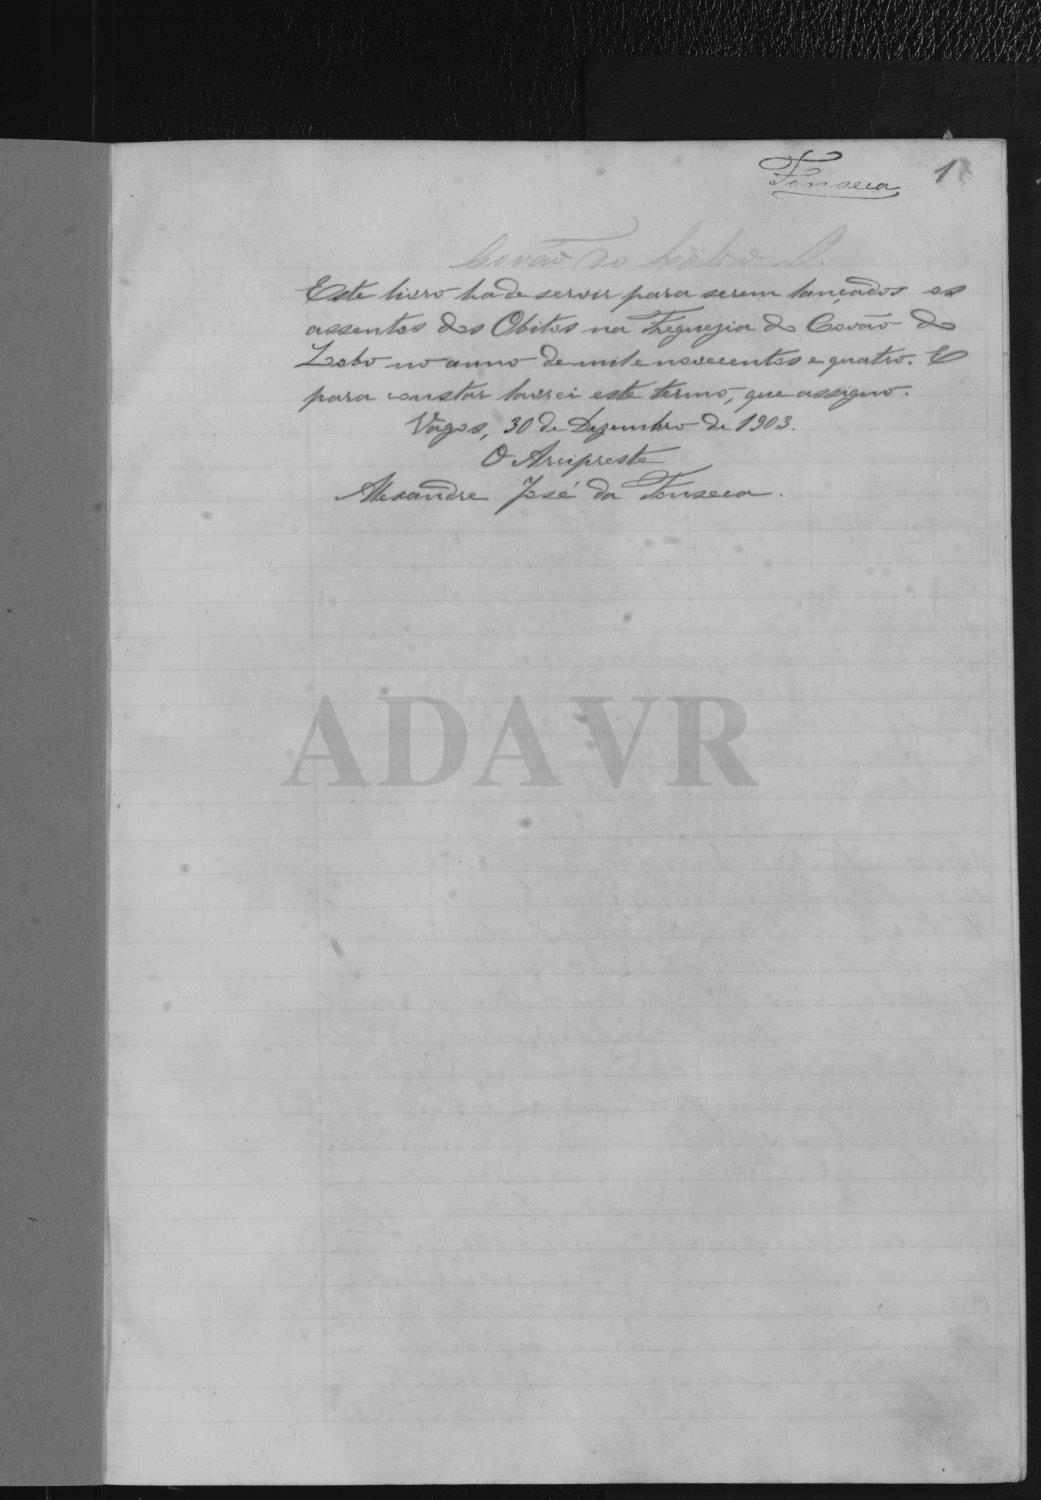 Fonseca 1
Covão do Lobo O.
Este livro ha de servir para serem lançados os
assentos dos Obitos na Freguezia do Covão do
Lobo no anno de mil e novecentos e quatro. E
para constar lavrei este termo, que assigno.
Vagos, 30 de Dezembro de 1903.
O Arcipreste
Alexandre José da Fonseca.
ADAVR